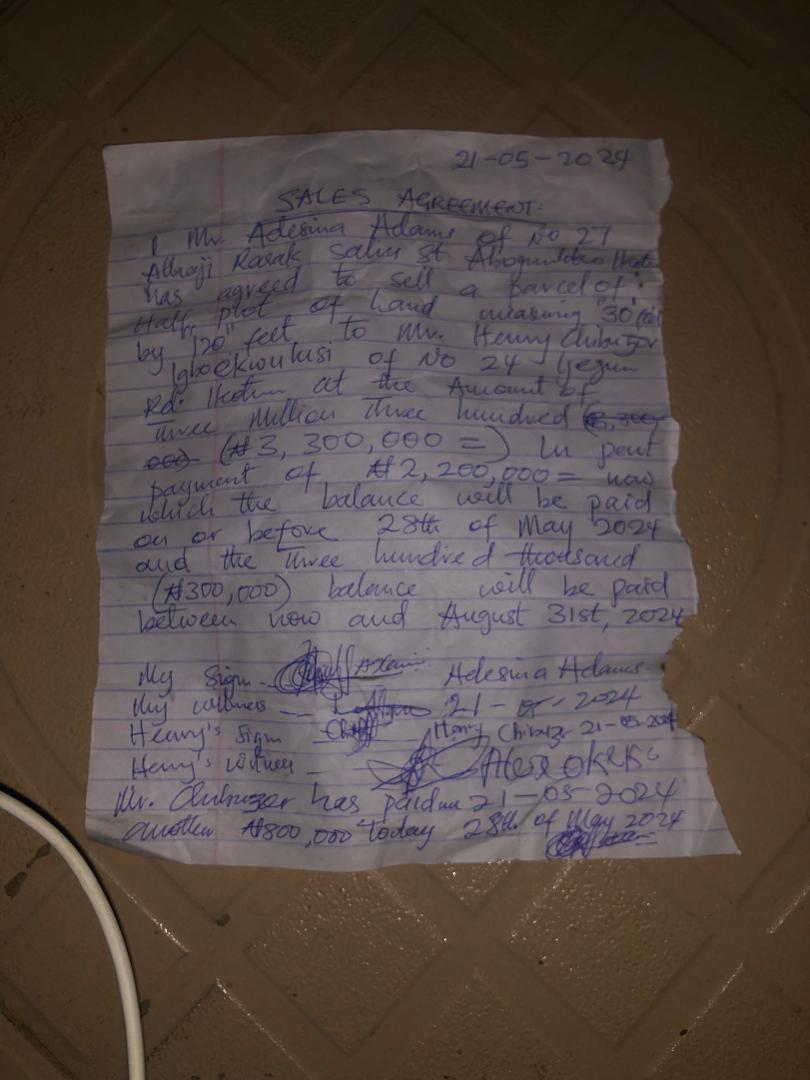 21-05-2024
SALES AGREEMENT.
I Mr. Adesina Adams of No 27
Alhaji Rasak Saliu St
has agreed to sell a parcel of
Half plot of land measuring "30 feet
by 120" feet to Mr. Henry Chibuzor
Igboekwulusi of No 24 Ijegun
Rd. Ikotun at the Amount of
Three Million Three hundred (₦3,300-
000) (₦3,300,000=) In part
payment of ₦2,200,000= now
which the balance will be paid
on or before 28th of May 2024
and the Three hundred thousand
(₦300,000) balance will be paid
between now and August 31st, 2024
My Sign - Adesina Adams.
My witness — 21-05-2024
Henry's Sign Henry Chibuz- 21-05-2024
Henry's witness - 
Mr. Chibuzor has paid me 21-05-2024
another ₦800,000 today 28th of May 2024